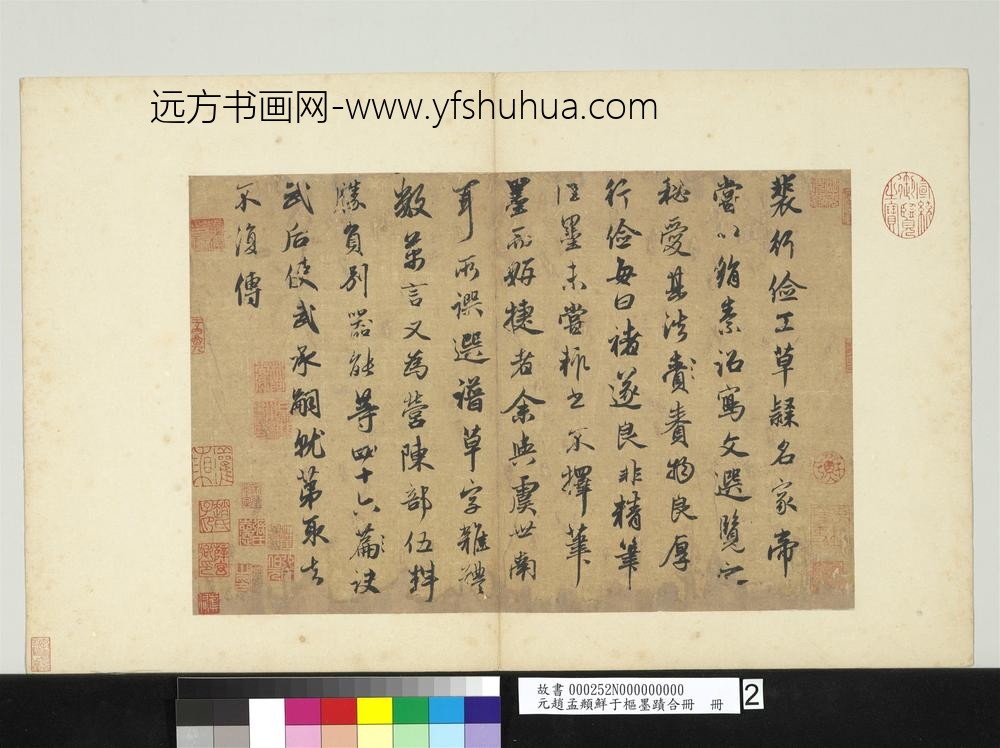 远方书画网-www.yfshuhua.com
裴行儉工草隸名家帝
嘗以絹素詔寫文選覽而
秘愛其法賚賚物良厚
行儉每曰褚遂良非精筆
佳墨未嘗輒書不擇筆
墨而妍捷者余與虞世南
耳所譔選譜草字雜體
數萬言又為營陳部伍料
勝負別器能等四十六篇訣
武后使武承嗣就第取去
不復傳
宣統御覽之寶
故書 000252N000000000
元趙孟頫鮮于樞墨蹟合冊 冊
2